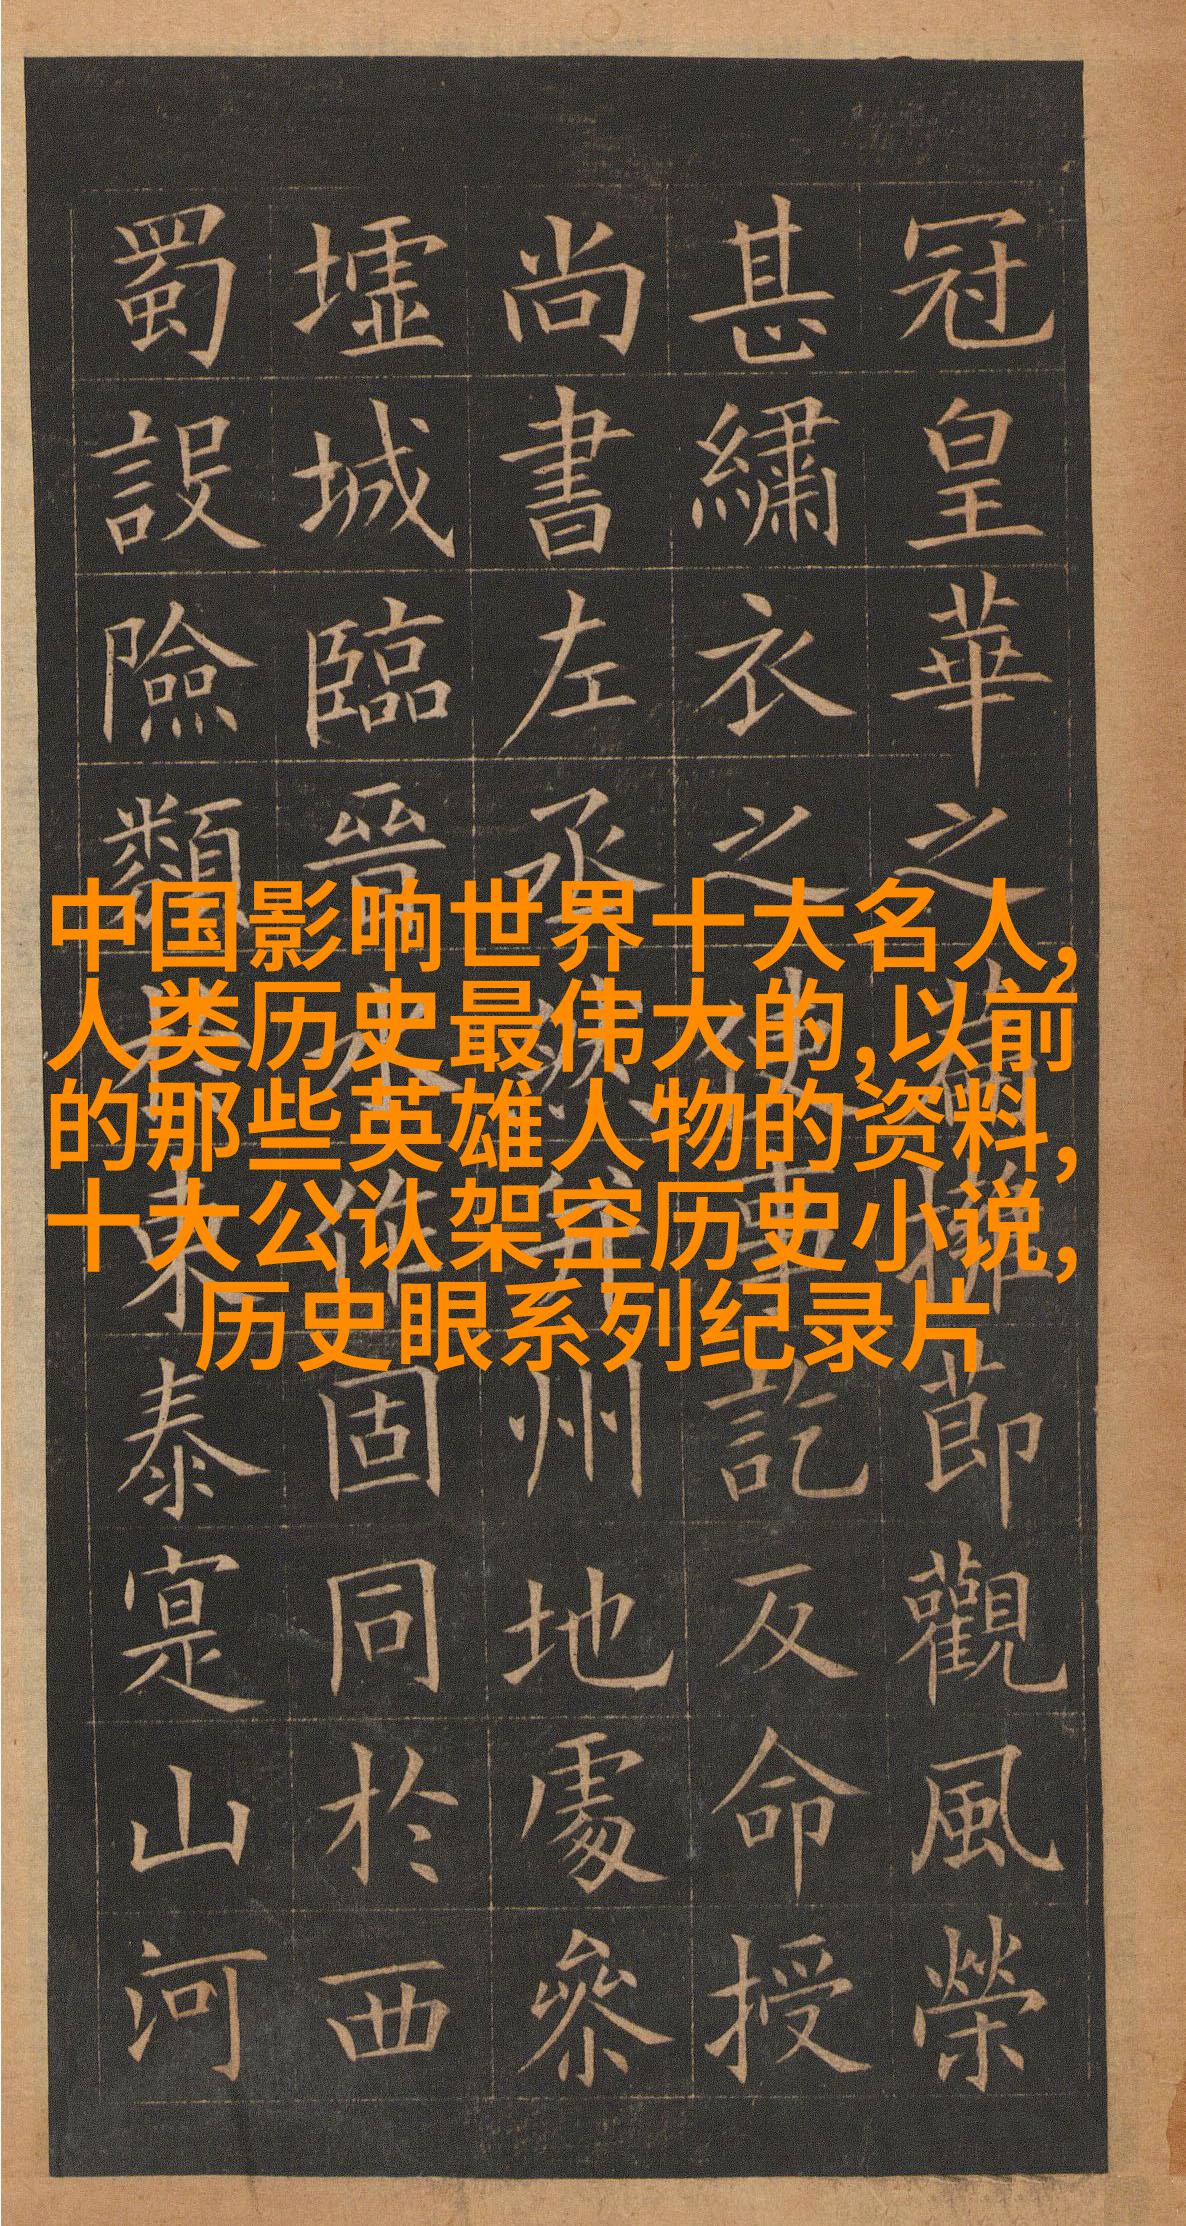 冠皇華之擁節觀風榮
甚繡衣之使事訖反命授
尚書左丞并州地處參
墟城臨晉水作固同於西
蜀設險類東泰寔山河
中国影响世界十大名人,
人类历史最伟大的,以前
的那些英雄人物的资料,
十大公认架空历史小说,
历史眼系列纪录片